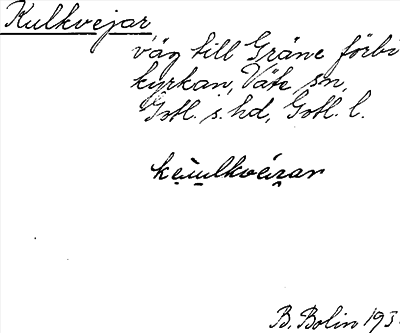 Kulkvejar
väg till Gräne förbi
kyrkan, Väte sn,
Gotl. s. hd, Gotl. l.
B. Bolin 193